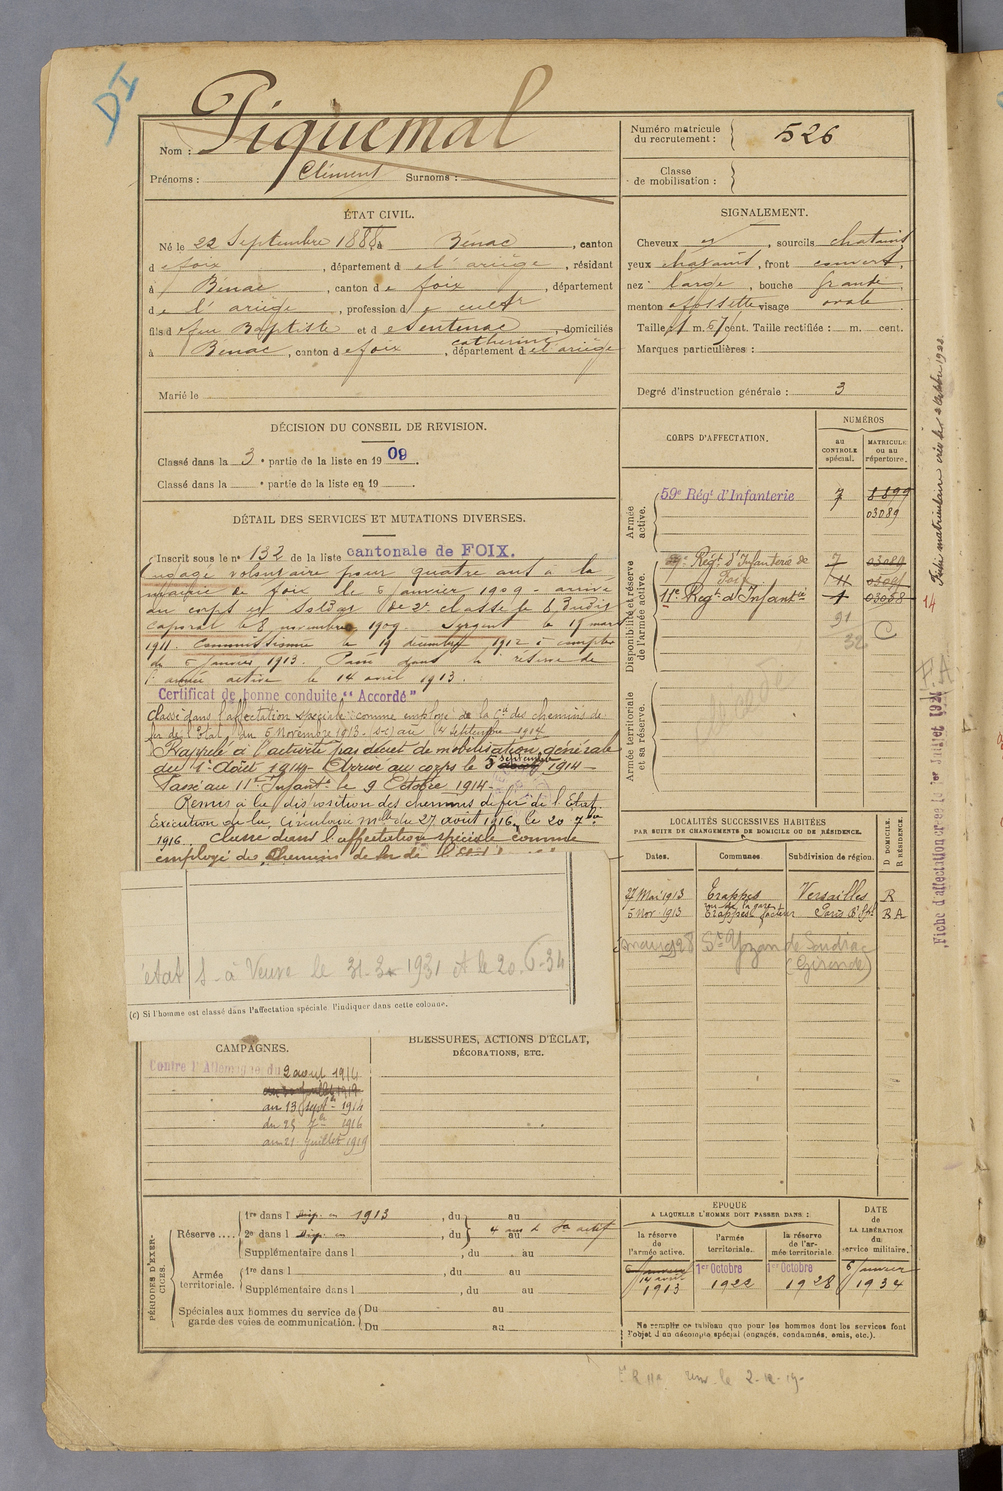 DI
Nom : Piquemal
Prénoms : Clément Surnoms :
Numéro matricule du recrutement : 526
Classe de mobilisation :
ÉTAT CIVIL.
Né le 22 Septembre 1888, à Bénac, canton
d e foix, département d e l'ariège, résidant
à Bénac, canton d e foix, département
d e l'ariège, profession d e cultr
fils d e feu Baptiste et d e Sentenac catherine, domiciliés
à Bénac, canton d e foix, département d e l'ariège
Marié le
SIGNALEMENT.
Cheveux et, sourcils chatains
yeux chatains, front couvert,
nez large, bouche grande,
menton à fossette visage ovale
Taille : 1 m. 67 cent. Taille rectifiée : m. cent.
Marques particulières :
Degré d'instruction générale : 3
DÉCISION DU CONSEIL DE REVISION.
Classé dans la 3e partie de la liste en 1909.
Classé dans la e partie de la liste en 19 .
DÉTAIL DES SERVICES ET MUTATIONS DIVERSES.
Inscrit sous le n° 132 de la liste cantonale de FOIX.
Engagé volontaire pour quatre ans à la
mairie de foix le 6 janvier 1909 - arrivé
au corps et soldat de 2e classe le 6 dudit
caporal le 8 novembre 1909. Sergent le 18 mars
1911. Commissionné le 19 décembre 1912 à compter
du 6 janvier 1913. Passé dans la réserve de
l'armée active le 14 avril 1913.
Certificat de bonne conduite "Accordé"
Classé dans l'affectation spéciale comme employé de la Cie des chemins de
fer de l'Etat, du 5 Novembre 1913 au 14 Septembre 1914
Rappelé à l'activité par décret de mobilisation générale
du 1er Août 1914. Arrivé au corps le 5 septembre 1914 -
Passé au 11e Infantie le 9 Octobre 1914 -
Remis à la disposition des chemins de fer de l'Etat.
Exécution de la Circulaire Mlle du 27 août 1916, le 20 7bre
1916. Classé dans l'affectation spéciale comme
employé des Chemins de fer de l'Etat
état S - à Veuve le 31-3-1931 et le 20-6-34
(c) Si l'homme est classé dans l'affectation spéciale l'indiquer dans cette colonne.
CORPS D'AFFECTATION.
NUMÉROS
au CONTROLE spécial.
MATRICULE ou au répertoire.
Armée active.
59e Régt d'Infanterie 7 8899
03089
Disponibilité et réserve de l'armée active.
59e Régt d'Infanterie de Foix 7 03089
11e Régt d'Infantie 1 03058
91
32
C
Armée territoriale et sa réserve.
LOCALITÉS SUCCESSIVES HABITÉES
PAR SUITE DE CHANGEMENTS DE DOMICILE OU DE RÉSIDENCE.
Dates. Communes Subdivision de région. D DOMICILE. R RÉSIDENCE.
27 Mai 1913 Trappes Versailles R
rue de la gare
5 Nov. 1913 Trappes facteur R A
mars 1928 St Yzan de Soudiac
(Gironde)
CAMPAGNES.
Contre l'Allemagne du 2 aout 1914
au 13 Sept 1914
du 25 7bre 1916
au 21 juillet 1919
BLESSURES, ACTIONS D'ÉCLAT,
DÉCORATIONS, ETC.
PÉRIODES D'EXERCICES.
Réserve ....
1re dans l 1913, du au
2e dans l, du au
Supplémentaire dans l, du au
Armée territoriale.
1re dans l, du au
Supplémentaire dans l, du au
Spéciales aux hommes du service de garde des voies de communication.
Du au
Du au
ÉPOQUE
A LAQUELLE L'HOMME DOIT PASSER DANS :
la réserve de l'armée active.
l'armée territoriale.
la réserve de l'armée territoriale.
DATE de LA LIBÉRATION du service militaire.
14 avril 1913
1er Octobre 1922
1er Octobre 1928
6 janvier 1934
Ne remplir ce tableau que pour les hommes dont les services font
l'objet d'un décompte spécial (engagés, condamnés, omis, etc.).
14 Fiche matriculaire créée le 2 Octobre 1922
Fiche d'affectation créée le 1er Juillet 1921